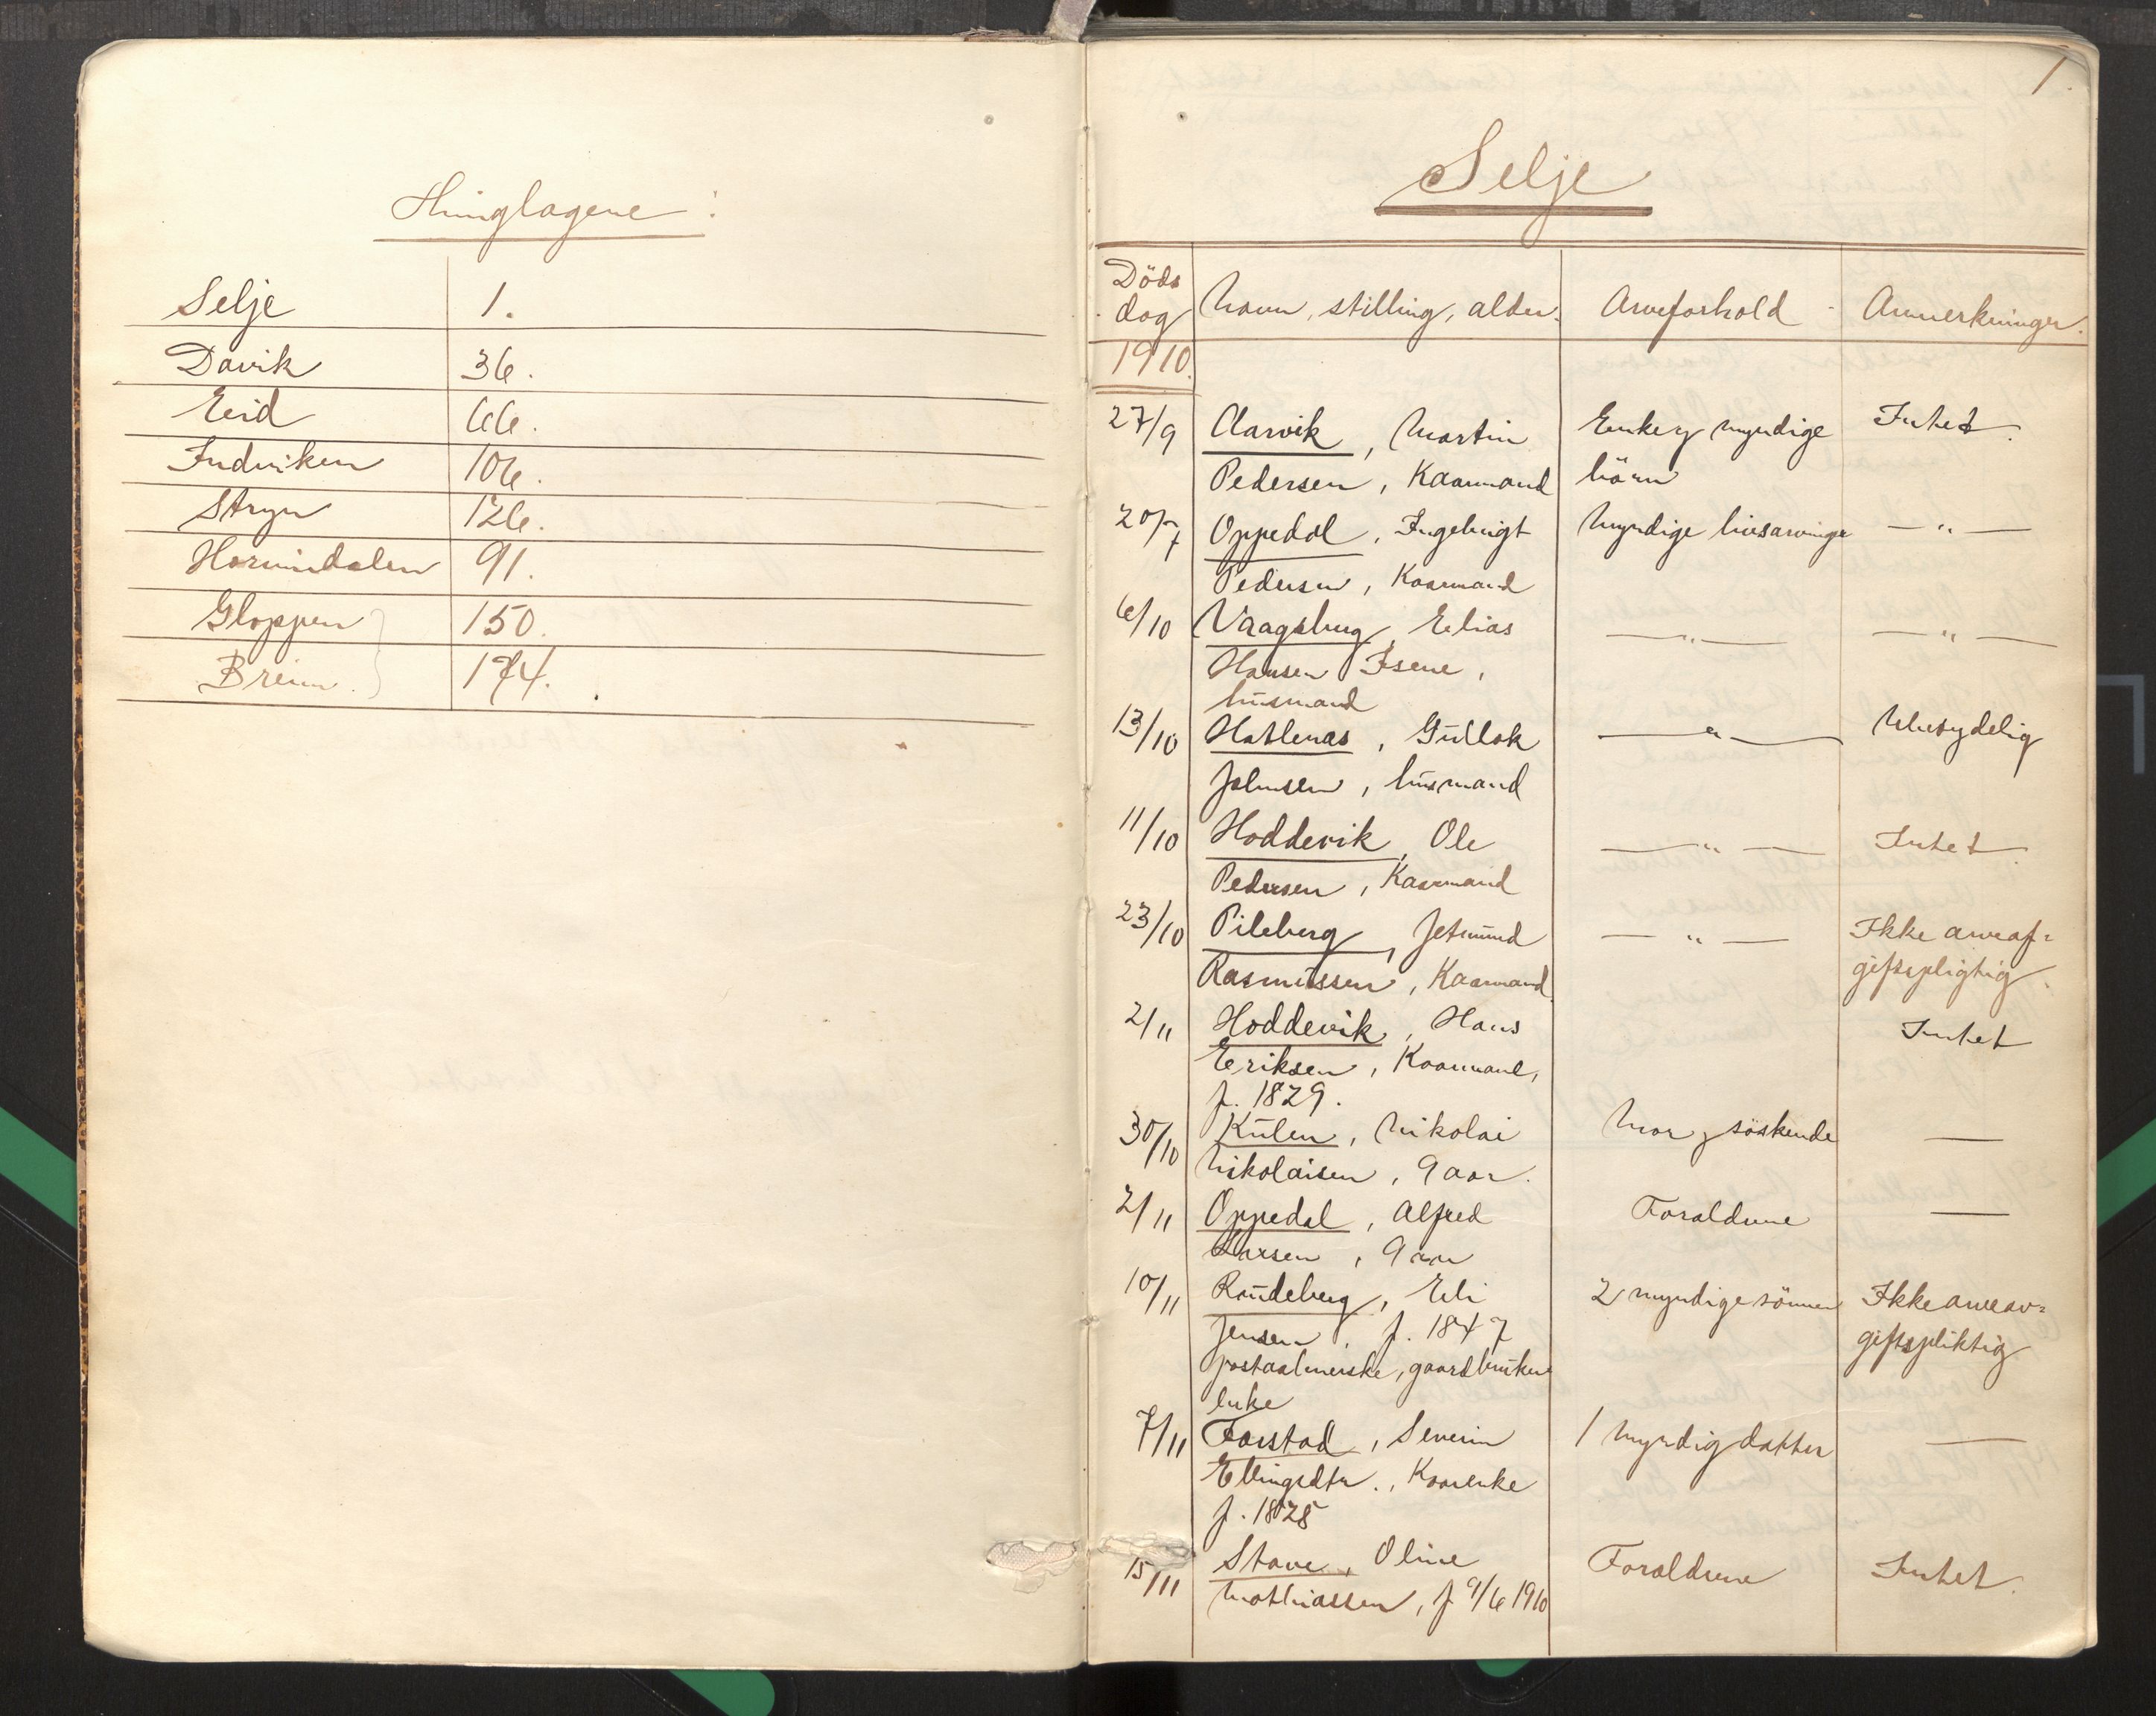 Thinglagene:
Selje 1.
Davik 36.
Eid 66.
Indviken 106.
Stryn 126.
Hornindalen 91.
Gloppen 150.
Breim. 174.
1.
Selje
Döds
dag Navn, stilling, alder. Arveforhold Anmerkninger.
1910.
27/9 Aarvik, Martin Enke og myndige Intet.
Pedersen, Kaarmand börn
20/7 Oppedal, Ingebrigt Myndige livsarvinge — " —
Pedersen, Kaarmand
6/10 Vaagsberg, Elias — " — — " —
Hansen Isene,
husmand
13/10 Hatlenas, Gullak — " — Ubetydelig
Johnsen, husmand
11/10 Hoddevik, Ole — " — Intet.
Pedersen, Kaarmand
23/10 Pileberg, Jetmund — " — Ikke arveaf=
Rasmussen, Kaarmand. giftspligtig.
2/11 Hoddevik, Hans Intet
Eriksen, Kaarmand,
f. 1829.
30/10 Kulen, Nikolai Mor og söskende —
Nikolaisen, 9 aar.
2/11 Oppedal, Alfred Foraldrene —
Larsen, 9 aar
10/11 Rundeberg, Eli 2 myndige sönner Ikke arveav=
Jensen, f. 1847 giftspliktig
postaapnerske, gaardbruker
enke
7/11 Farstad, Severin 1 myndig datter —
Ellingsdtr., Kaarenke
f. 1828
15/11 Stave, Oline Foraldrene Intet.
Mathiassen, f 9/6 1910